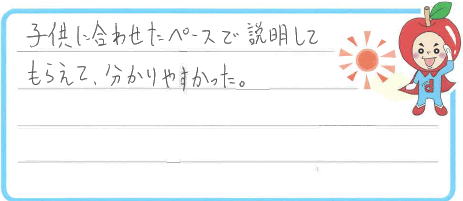 子供に合わせたペースで説明して
もらえて、分かりやすかった。
d